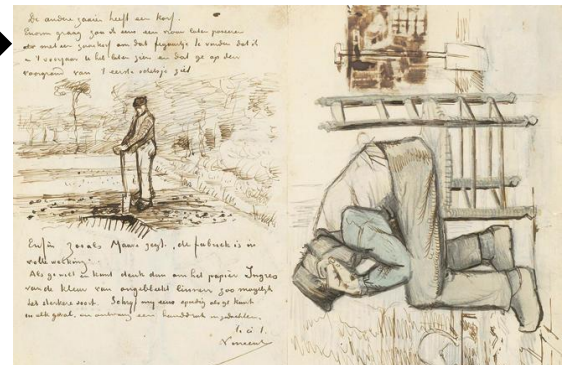 De andere zaaier heeft een korf.
Enorm graag zou ik eens een vrouw laten poseeren
met een zaaikorf om dat figuurtje te vinden dat ik
u 't voorjaar heb laten zien en dat ge op den
voorgrond van 't eerste schetsje ziet
Enfin zooals Mauve zegt, de fabriek is in
volle werking.
Als ge wilt & kunt denk dan om het papier Ingres
van de kleur van ongebleekt linnen zoo mogelijk
het sterkere soort. Schrijf mij eens spoedig als ge kunt
in elk geval, en ontvang een handdruk in gedachten,
t. à t.
Vincent